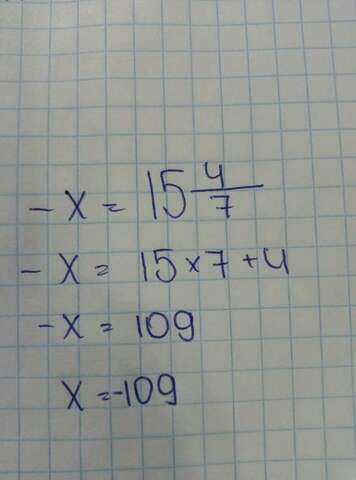 - x = 15 4/7
- x = 15 × 7 + 4
- x = 109
x = -109